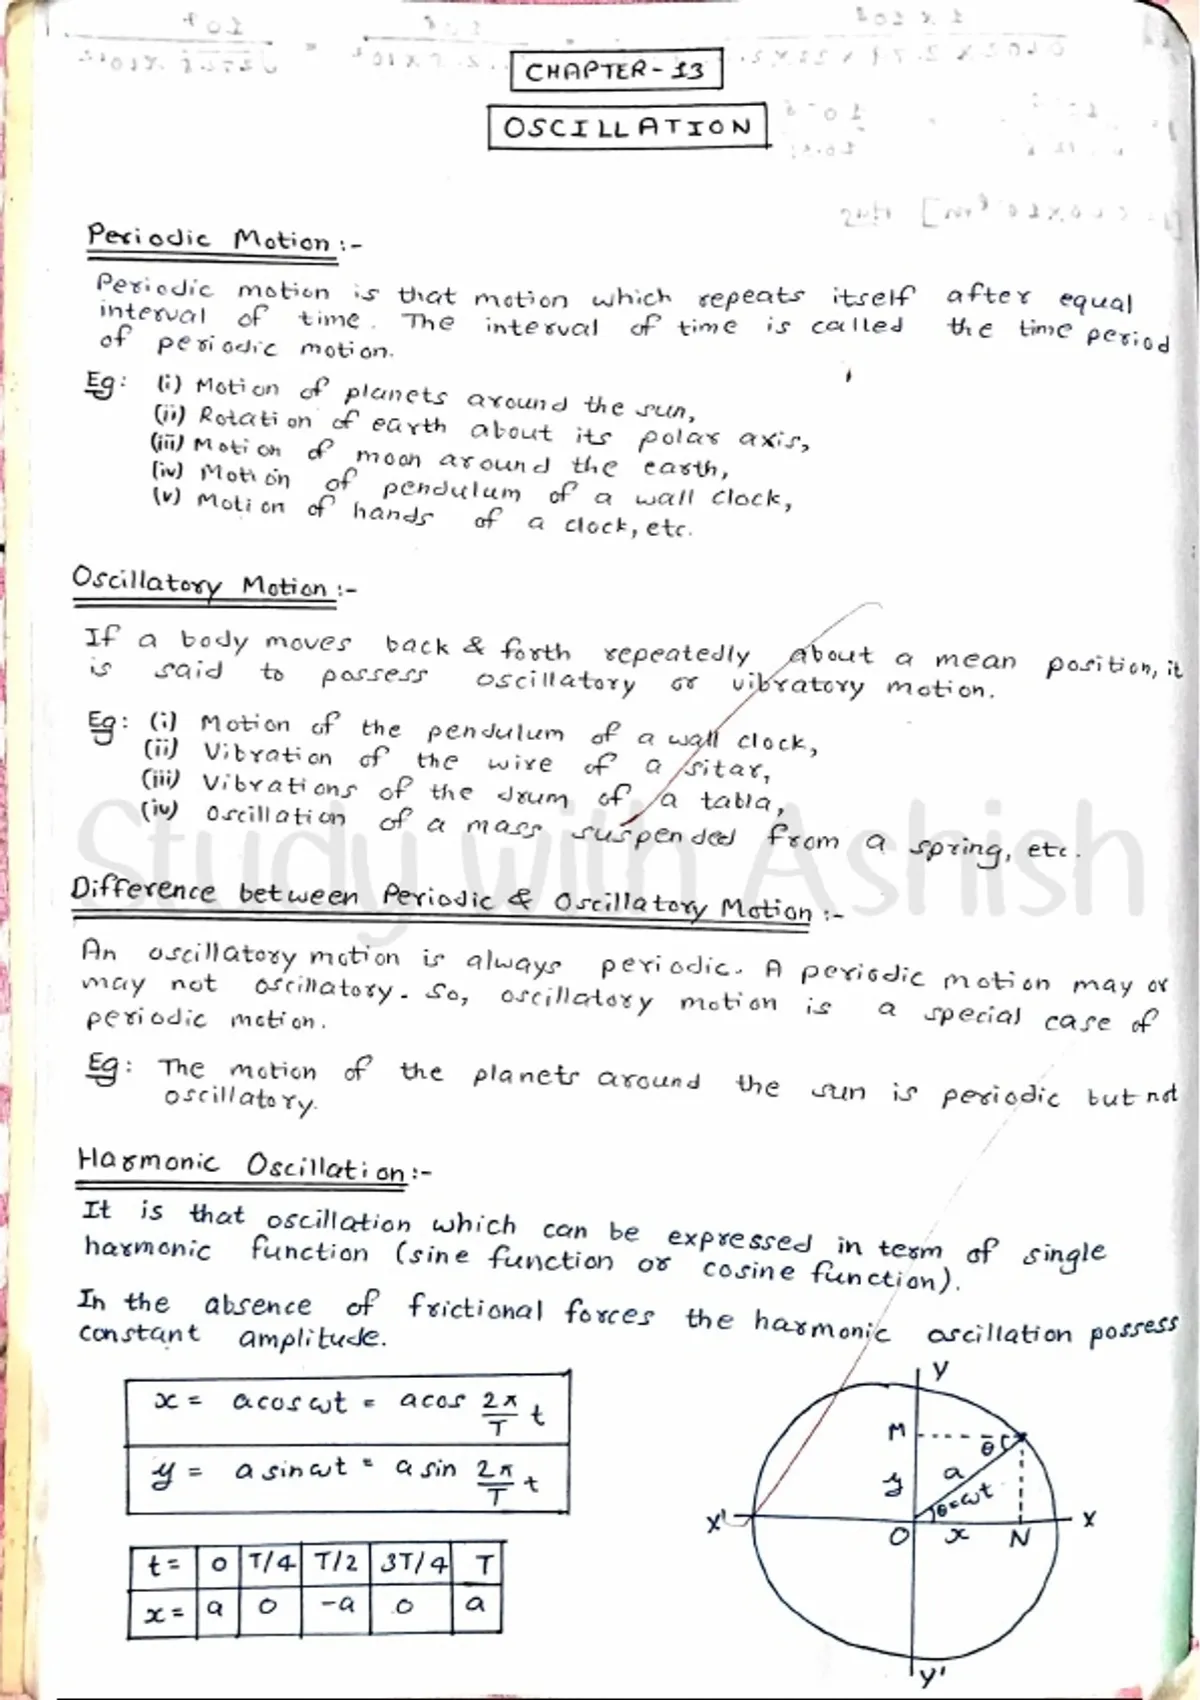 CHAPTER-13
OSCILLATION
Periodic Motion :-
Periodic motion is that motion which repeats itself after equal
interval of time. The interval of time is called the time period
of periodic motion.
Eg: (i) Motion of planets around the sun,
(ii) Rotation of earth about its polar axis,
(iii) Motion of moon around the earth,
(iv) Motion of pendulum of a wall clock,
(v) Motion of hands of a clock, etc.
Oscillatory Motion :-
If a body moves back & forth repeatedly about a mean position, it
is said to possess oscillatory or vibratory motion.
Eg: (i) Motion of the pendulum of a wall clock,
(ii) Vibration of the wire of a sitar,
(iii) Vibrations of the drum of a tabla,
(iv) Oscillation of a mass suspended from a spring, etc.
Study with Ashish
Difference between Periodic & Oscillatory Motion :-
An oscillatory motion is always periodic. A periodic motion may or
may not oscillatory. So, oscillatory motion is a special case of
periodic motion.
Eg: The motion of the planets around the sun is periodic but not
oscillatory.
Harmonic Oscillation :-
It is that oscillation which can be expressed in term of single
harmonic function (sine function or cosine function).
In the absence of frictional forces the harmonic oscillation possess
constant amplitude.
x = a cos ωt = a cos 2π/T t
y = a sin ωt = a sin 2π/T t
t = 0 T/4 T/2 3T/4 T
x = a 0 -a 0 a
Y
M θ
y a θ=ωt
X' O x N X
Y'